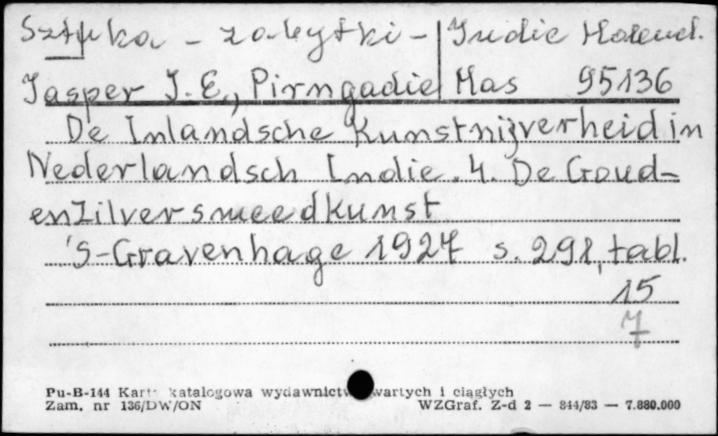 Sztuka - zabytki - Indie Holend.
Jasper J. E., Pirngadie Mas 95136
De Inlandsche Kunstnijverheid in
Nederlandsch Indie. 4. De Goud-
en Zilversmeedkunst
'S-Gravenhage 1927 s. 291, tabl.
15
7
Pu-B-144 Karta katalogowa wydawnictw zwartych i ciągłych
Zam. nr 136/DW/ON WZGraf. Z-d 2 — 844/83 — 7.880.000